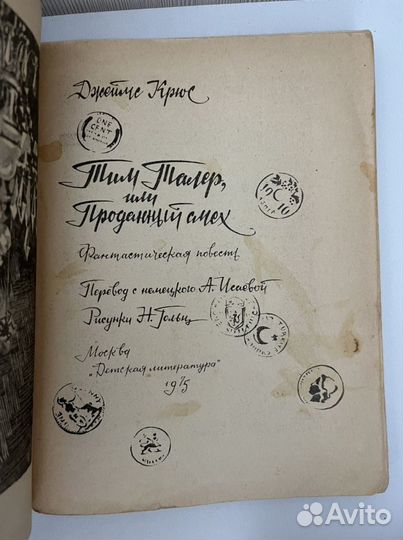 Джеймс Крюс
ONE
CENT
Тим Талер,
или
Проданный смех
10 10
Фантастическая повесть
Перевод с немецкого А. Исаевой
Рисунки Н. Гольц
Москва
"Детская литература"
1975
Avito